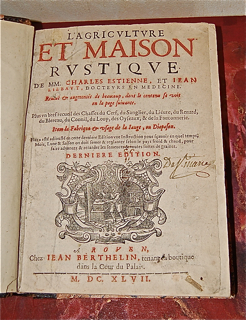 L'AGRICVLTVRE
ET MAISON
RVSTIQVE
DE MM. CHARLES ESTIENNE, ET IEAN
LIEBAVT, DOCTEVRS EN MEDECINE.
Reueüe & augmentée de beaucoup, dont le contenu se void
en la page suiuante.
Plus vn bref recueil des Chasses du Cerf, du Sanglier, du Lieure, du Renard,
du Blereau, du Connil, du Loup, des Oyseaux, & de la Fauconnerie.
Item la Fabrique & vsage de la Iauge, ou Diapason.
DERNIERE EDITION
A ROVEN,
Chez IEAN BERTHELIN, tenant sa boutique
dans la Cour du Palais.
M. DC. XLVII.